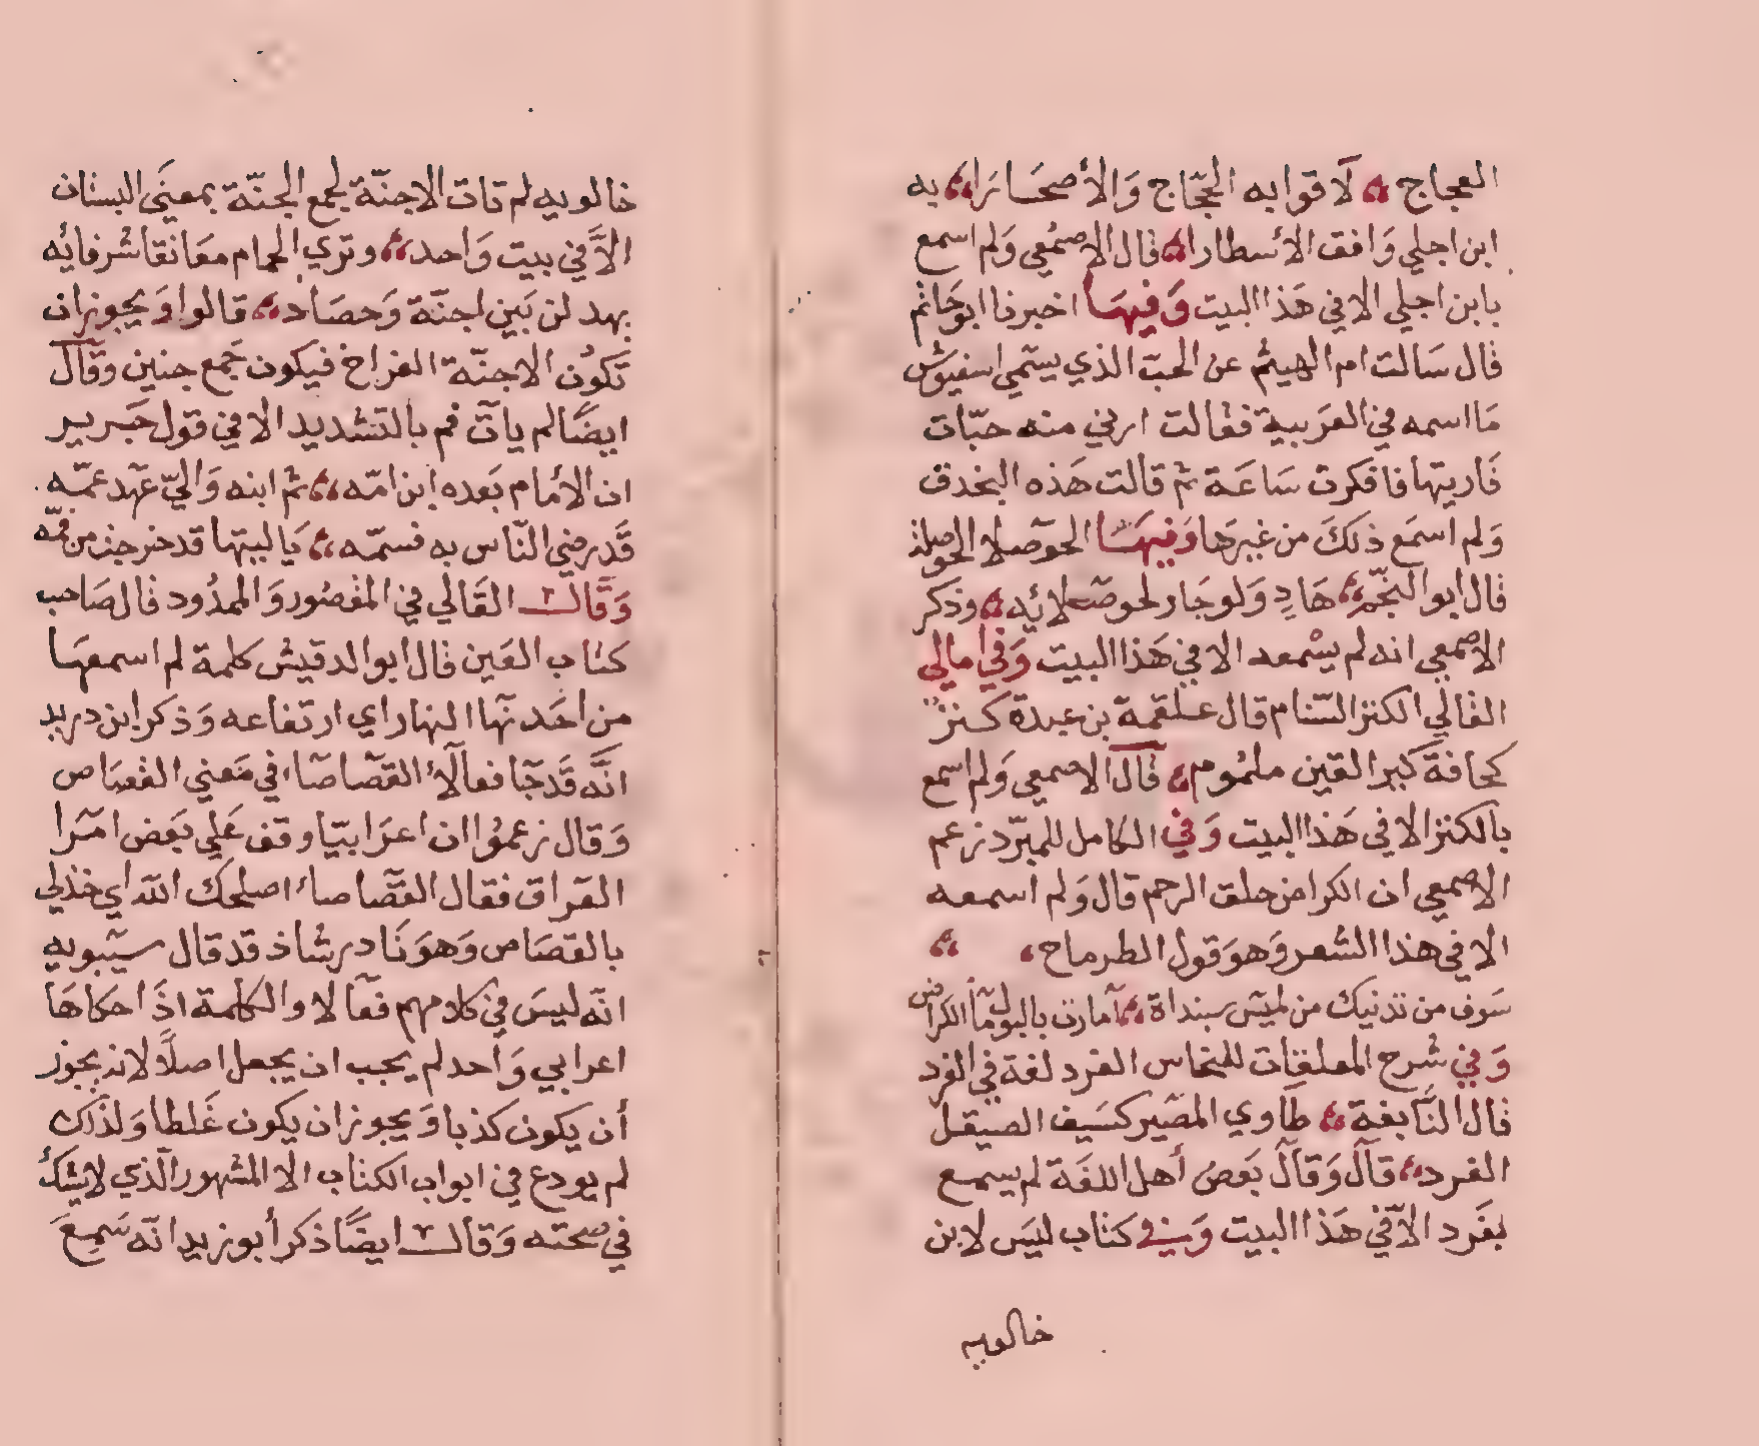 العجاج ، لَاقوا به الحجّاج وَالأصحَارا ، به
ابن اجلي وَافق الأسطارا ، قال الاصمُعي وَلم اسمع
بابن اجلي الا في هَذا البيت وَفيهَا اخبرنا ابو حَاتم
قال سَالت ام الهيثم عن الحبّ الذي يسَمّي اسفيوش
مَا اسمه في العَربية فقالت ارني منه حبّات
فَاريتها فافكرت سَاعَة ثم قالت هَذه البخدق
وَلم اسمَع ذلكَ من غيرهَا وَفيهَا الحوصلا الحوصلة
قال ابو النجّم ، هَادٍ وَلو جَار لحوصَلائه ، وذكر
الاصمعي انه لم يسْمعه الا في هَذا البيت وَفي امالي
القالي الكنز السّنام قال علقمة بن عبدة كنز
كحافةَ كير القين ملمُوم ، قَال الاصمعي وَلم اسمع
بالكنز الا في هَذا البيت وَفي الكامل للمبرّد زعم
الاصمعي ان الكراض حلق الرحم قال وَلم اسمعه
الا في هذا الشعر وَهوَ قول الطرماح ،
سَوف من تدنيك من لميَس سبنداة ، أمارت بالبول مَاَ الكراض
وَفي شرح المعلقات للنحاس الفرد لغة في الفرد
قال النَّابغة ، طَاوي المصَير كسَيف الصيقل
الفرد ، قَال وَقال بَعض أهل اللغَة لم يسمع
بفَرد الاَّ في هَذا البيت وَفي كتاب ليَس لابن
خالويه
خالويه لم تات الاجنّة لجمع الجنّة بمعنَى البستان
الاَّ في بيت وَاحد ، وتري الحمام معَانقا شرفايُه
بهدلن بَين اجنّة وَحصَاد ، قالوا وَيجوز ان
تَكوُن الاجنّة الفراخ فيكون جَمع جنين وقَال
ايضًا لم يات فم بالتشديد الا في قول جَرير
ان الأمام بَعده ابن امّه ، ثم ابنه وَاليّ عَهد عمّه
قَد رضي النّاس به فسمّه ، يَا ليتها قد خرجت من فمّه
وَقَال القَالي في المقصُور وَالممدُود قال صَاحب
كتاب العَين قال ابو الدقيش كلمة لم اسمعهَا
من احَد نَهآ النهار اي ارتفاعه وَذكر ابن دريد
انَّه قَد جَآ فعالَاُ القصَاصَا، في مَعني القصَاص
وَقال زعمُوا ان اعرَابيّا وقف عَلي بَعض امَرا
العَراق فقال القصَاصا، اصلحك اللّه اي خذلي
بالقصَاص وَهوَ نَادر شاذ قد قال سيَبويه
انّه ليسَ في كلامهم فعَالا والكلمة اذَا حكاهَا
اعرابي وَاحد لم يجب ان يجعل اصلًا لانه يجوز
أن يكون كذبا وَيجوز ان يكون غَلطا وَلذلك
لم يودع في ابواب الكتاب الا المشهور الَّذي لا يشكُّ
في صحّته وَقال ايضًا ذكر أبو زيد انّه سَمعَ